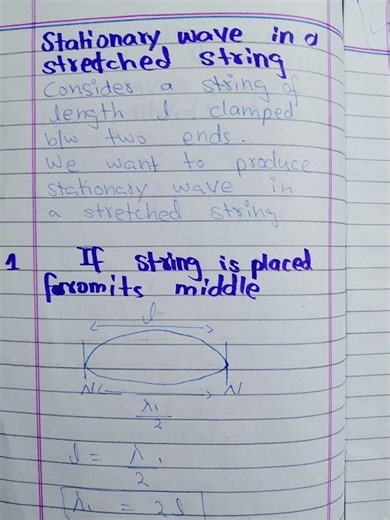 Stationary wave in a
stretched string
Consider a string of
length l clamped
b/w two ends.
We want to produce
stationary wave in
a stretched string.
1 If string is placed
from its middle
l
N N
λ₁/2
l = λ₁/2
λ₁ = 2l